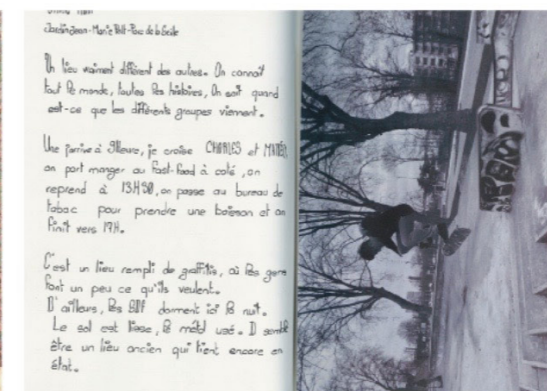 Jardin Jean-Marie Pelt-Parc de la Seille
Un lieu vraiment différent des autres. On connaît
tout le monde, toutes les histoires, on sait quand
est-ce que les différents groupes viennent.
Une j'arrive à 9 heure, je croise CHARLES et
on part manger au fast-food à coté, on
reprend à 13H30, on passe au bureau de
tabac pour prendre une boisson et on
finit vers 19H.
C'est un lieu rempli de graffitis, où les gens
font un peu ce qu'ils veulent.
D'ailleurs, les SDF dorment ici la nuit.
Le sol est lisse, le métal usé. Il semble
être un lieu ancien qui tient encore en
état.